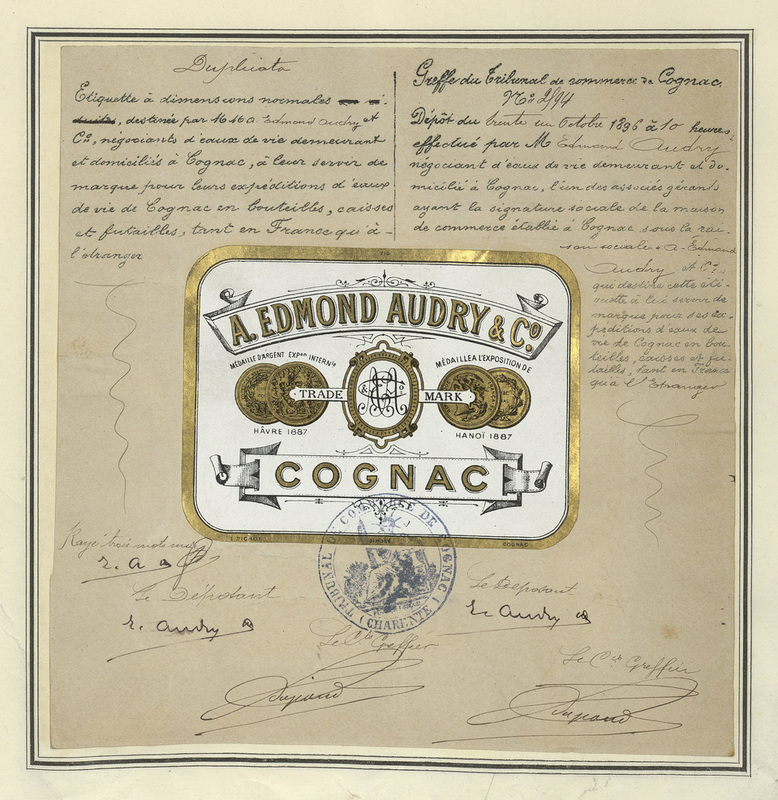 Duplicata
Etiquette à dimensions normales
destinée par MM A. Edmond Audry et
Cie, négociants d'eaux de vie demeurant
et domiciliés à Cognac, à leur servir de
marque pour leurs expéditions d'eaux
de vie de Cognac en bouteilles, caisses
et futailles, tant en France qu'à
l'étranger
Greffe du Tribunal de commerce de Cognac.
No 2194
Dépôt du trente un Octobre 1896 à 10 heures,
effectué par M Edmond Audry
négociant d'eaux de vie demeurant et do-
micilié à Cognac, l'un des associés gérants
ayant la signature sociale de la maison
de commerce établie à Cognac sous la rai-
son sociale A. Edmond
Audry et Cie
que destine cette éti-
quette à lui servir de
marque pour ses ex-
péditions d'eaux de
vie de Cognac en bou-
teilles, caisses et fu-
tailles, tant en France
qu'à l'Etranger
A. EDMOND AUDRY & Co.
MÉDAILLE D'ARGENT EXPon INTERNle
MÉDAILLE A L'EXPOSITION DE
TRADE MARK
HÂVRE 1887
HANOÏ 1887
COGNAC
COGNAC
TRIBUNAL DE COMMERCE DE COGNAC (CHARENTE)
Rayé trois mots nuls
E. A
Le Déposant
E. Audry
Le Déposant
E. Audry
Le Cis Greffier
Le Cis Greffier